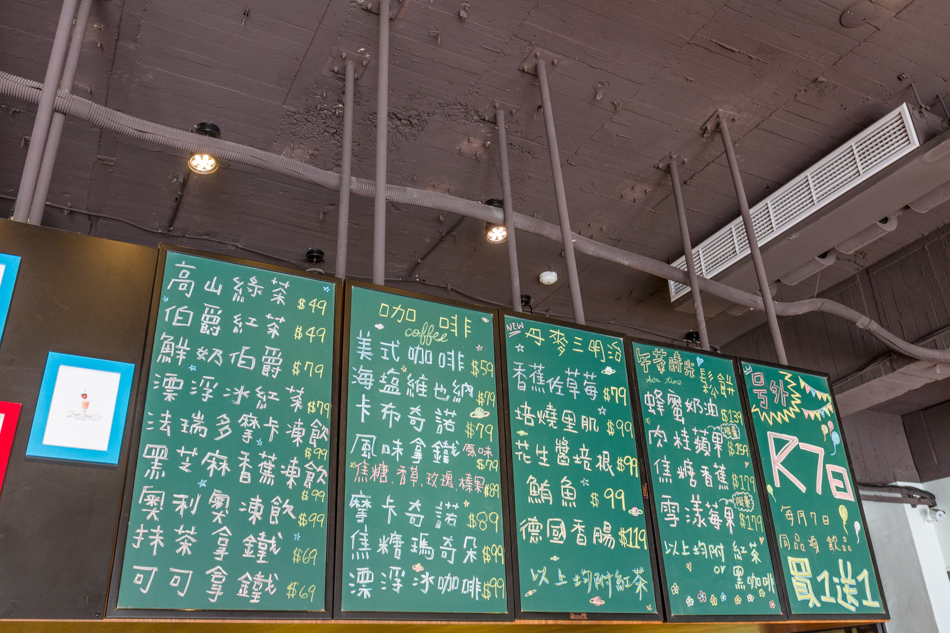 高山綠茶 $49
伯爵紅茶 $49
鮮奶伯爵 $79
漂浮冰紅茶 $79
法瑞多摩卡凍飲 $99
黑芝麻香蕉凍飲 $99
奧利奧凍飲 $99
抹茶拿鐵 $69
可可拿鐵 $69
咖啡
coffee
美式咖啡 $59
海鹽維也納 $79
卡布奇諾 $79
風味拿鐵 原味 $79
"焦糖.香草.玫瑰.榛果 $89
摩卡奇諾 $89
焦糖瑪奇朵 $99
漂浮冰咖啡 $99
NEW 丹麥三明治
香蕉佐草莓 $79
培燒里肌 $99
花生醬培根 $99
鮪魚 $99
德國香腸 $119
以上均附紅茶
午茶時光 鬆餅
tea time
蜂蜜奶油 $139
肉桂蘋果 $159
焦糖香蕉 $179
雪漾莓果 $179
以上均附 紅茶
or
黑咖啡
号外
R7日
每月7日
同品項 飲品
買1送1